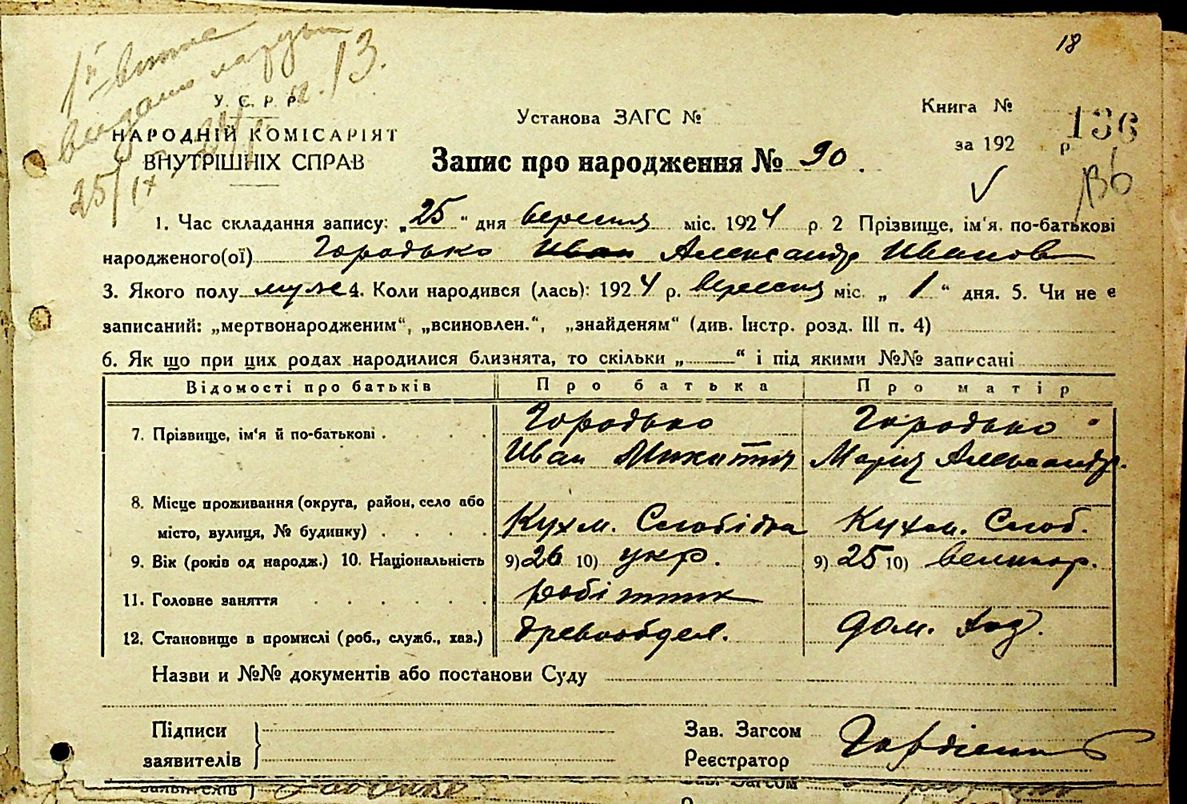 18
13.
У. С. Р. Р.
НАРОДНІЙ КОМІСАРІЯТ
ВНУТРІШНІХ СПРАВ
25/IX
Установа ЗАГС №
Книга №
за 192 р.
136
136
Запис про народження № 90.
1. Час складання запису: „25“ дня вересня міс. 1924 р 2 Прізвище, ім'я. по-батькові
народженого(ої) Городько Иван Александр Иванов
3. Якого полу муж 4. Коли народився (лась): 1924 р. вересня міс. „1“ дня. 5. Чи не є
записаний: „мертвонародженим“, „всиновлен.“, „знайденям“ (див. Інстр. розд. III п. 4)
6. Як що при цих родах народилися близнята, то скільки „ “ і під якими №№ записані
Відомості про батьків Про батька Про матір
7. Прізвище, ім'я й по-батькові Городько Городько
Иван Микитич Марія Александр.
8. Місце проживання (округа, район, село або
місто, вулиця, № будинку) Кухм. Слобідка Кухм. Слоб.
9. Вік (років од народж.) 10. Національність 9) 26 10) укр. 9) 25 10) великор.
11. Головне заняття робітник
12. Становище в промислі (роб., служб., хаз.) древообдел. дом. хоз.
Назви и №№ документів або постанови Суду
Підписи
заявителів
Зав. Загсом
Реєстратор
заявителів
Зав. Загсом